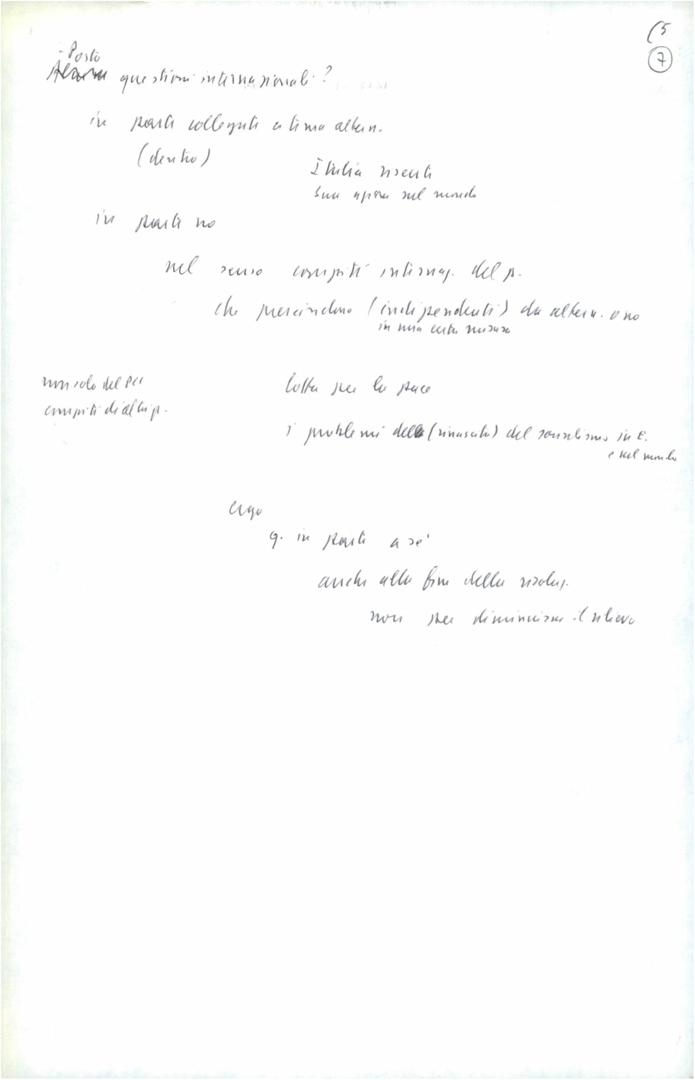 (5
7
- Posto
questioni internazionali?
in parte collegate a tema altern.
(dentro)
Italia risenti
sua opera nel mondo
in parte no
nel senso compiti internaz. del p.
che prescindono (indipendenti) da altern. o no
in una certa misura
non solo del PCI
compiti di altri p.
lotta per la pace
i problemi della (rinascita) del socialismo in E.
e nel mondo
ergo
q. in parte a sé
anche alla fine della risoluz.
non per diminuirne il rilievo